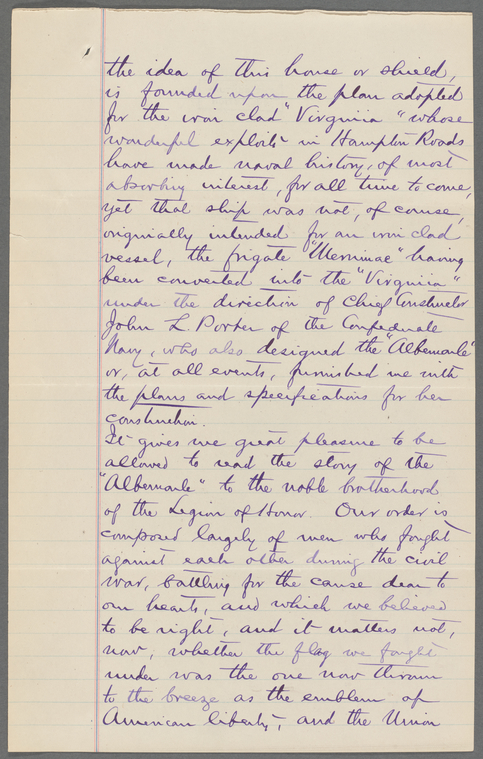 the idea of this house or shield,
is founded upon the plan adopted
for the iron clad "Virginia" whose
wonderful exploits in Hampton Roads
have made naval history, of most
absorbing interest, for all time to come,
yet that ship was not, of course,
originally intended for an iron clad
vessel, the frigate "Merrimac" having
been converted into the "Virginia"
under the direction of Chief Constructor
John L. Porter of the Confederate
Navy, who also designed the "Albemarle"
or, at all events, furnished me with
the plans and specifications for her
construction.
It gives me great pleasure to be
allowed to read the story of the
"Albemarle" to the noble brotherhood
of the Legion of Honor. Our order is
composed largely of men who fought
against each other during the civil
war, battling for the cause dear to
our hearts, and which we believed
to be right, and it matters not,
now, whether the flag we fought
under was the one now thrown
to the breeze as the emblem of
American liberty, and the Union